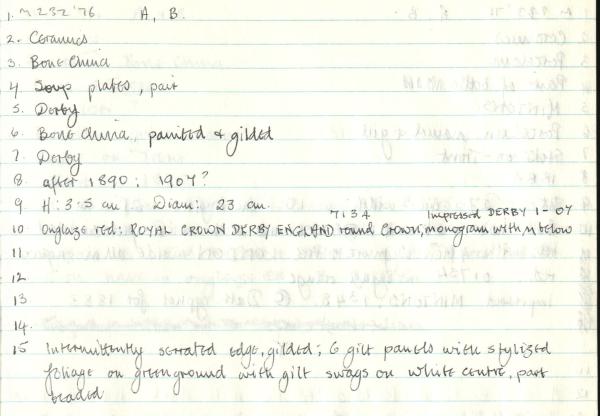 1. M 232 '76 A, B.
2. Ceramics
3. Bone China
4 Soup plates, pair
5. Derby
6. Bone China, painted & gilded
7. Derby
8. after 1890: 1907?
9 H: 3·5 cm Diam: 23 cm
7134 Impressed DERBY 1-07
10 Onglaze red: ROYAL CROWN DERBY ENGLAND round Crown, monogram with, below
11
12
13
14.
15 Intermittently serrated edge, gilded; 6 gilt panels with stylized
foliage on green ground with gilt swags on white centre, part
beaded